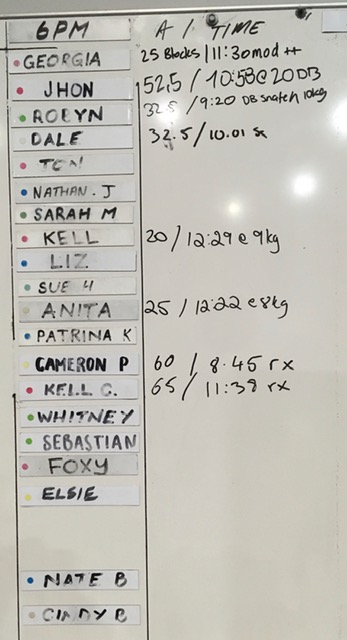 6PM A / TIME
GEORGIA 25 Blocks / 11:30 mod ++
JHON 52.5 / 10:58 @ 20 DB
ROBYN 32.5 / 9:20 DB snatch 10kg
DALE 32.5 / 10.01 sc
TON
NATHAN. J
SARAH M
KELL 20 / 12:29 @ 9kg
LIZ
SUE H
ANITA 25 / 12:22 @ 8kg
PATRINA K
CAMERON P 60 / 8.45 rx
KELL C. 65 / 11:38 rx
WHITNEY
SEBASTIAN
FOXY
ELSIE
NATE B
CINDY B